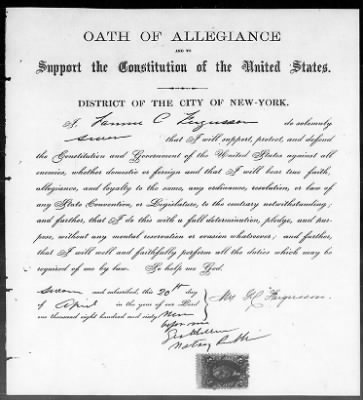 OATH OF ALLEGIANCE
AND TO
Support the Constitution of the United States.
DISTRICT OF THE CITY OF NEW-YORK.
I, Fannie C Fergusson do solemnly
swear that I will support, protect, and defend
the Constitution and Government of the United States against all
enemies, whether domestic or foreign and that I will bear true faith,
allegiance, and loyalty to the same, any ordinance, resolution, or law of
any State Convention, or Legislature, to the contrary notwithstanding;
and further, that I do this with a full determination, pledge, and pur-
pose, without any mental reservation or evasion whatsoever; and further,
that I will well and faithfully perform all the duties which may be
required of me by law. So help me God.
Sworn and subscribed, this 20th day
of April in the year of our Lord
one thousand eight hundred and sixty
Mrs Fergusson.
before me
Notary Public